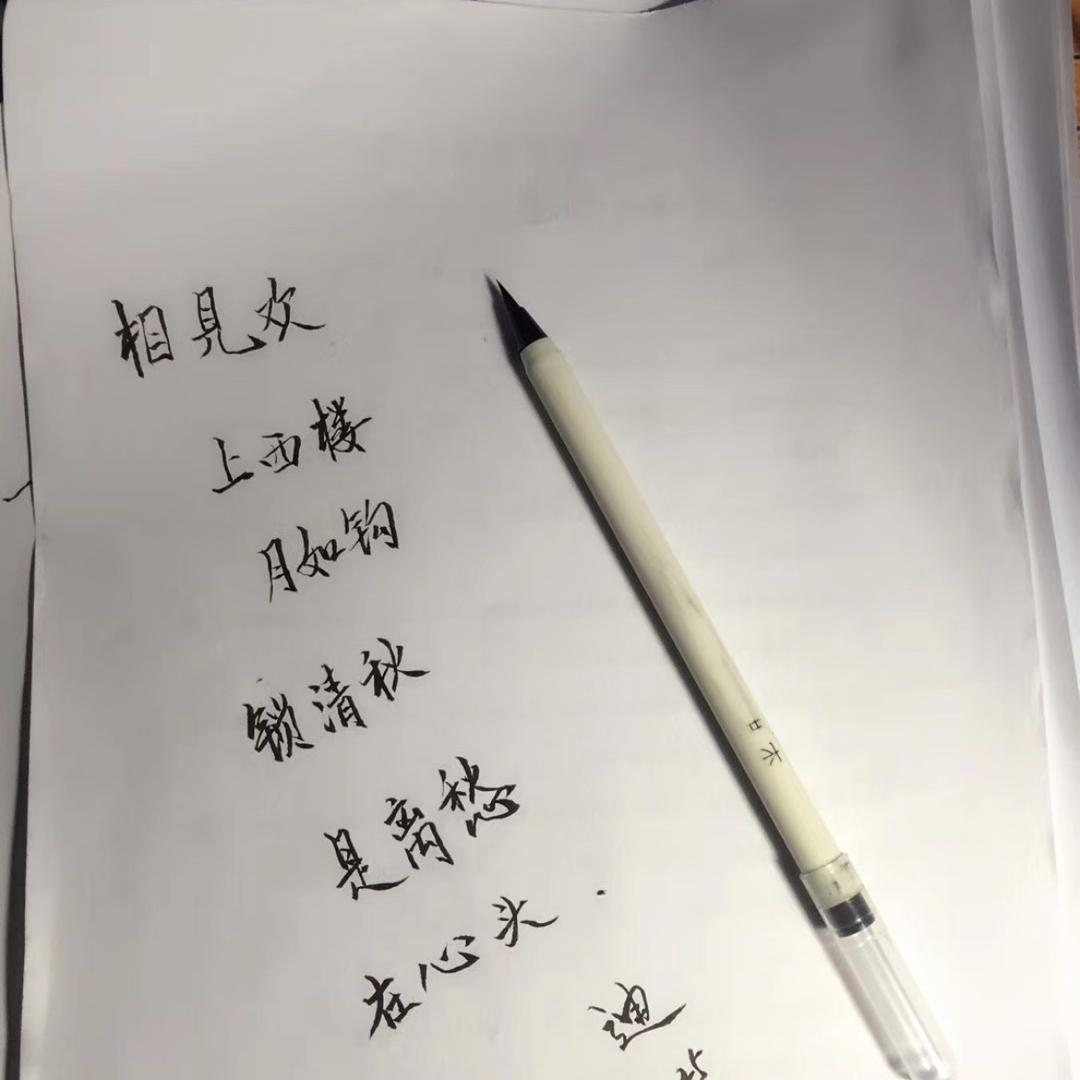 相見欢
上西楼
月如钩
锁清秋
是离愁
在心头
迪